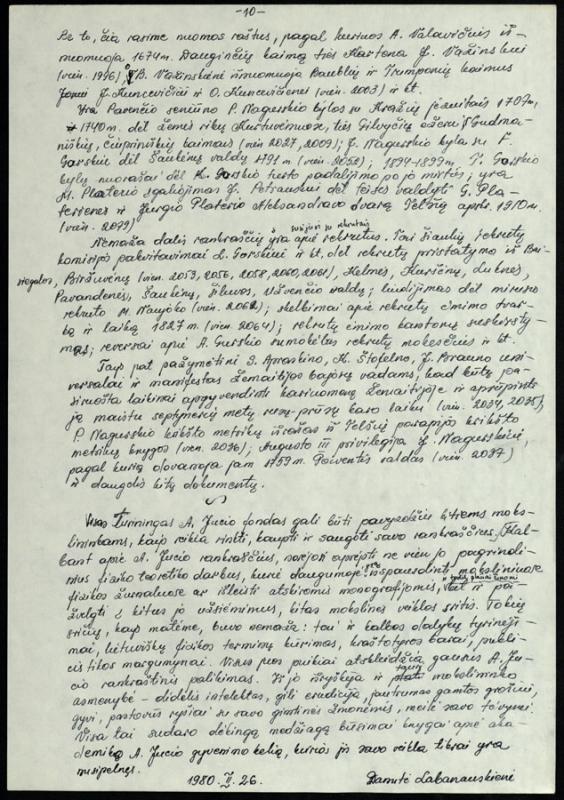 -10-
Be to, čia rasime nuomos raštus, pagal kuriuos A. Valavičius iš-
nuomuoja 1674 m. Dauginčių kaimą ties Kartena J. Važinskui
(vien. 1996), B. Važinskienė išnuomuoja Baublių ir Trumponių kaimus
Jonui J. Kuncevičiui ir O. Kuncevičienei (vien. 2003) ir kt.
Yra Parenčio seniūno P. Nagurskio bylos su Kražių jėzuitais 1709 m.
ir 1740 m. dėl žemės ribų Kurtuvėnuose, ties Gilvyčių ežeru Gudma-
niškių, kaimais (vien 2027, 2009); J. Nagurskio byla su F.
Gorskiu dėl Šaukėnų valdų 1791 m (vien. 2052); 1894-1899 m. Gorskio
bylų nuorašai dėl K. Gorskio turto padalijimo po jo mirties; yra
M. Platerio įgaliojimas J. Petrauskui dėl teisės valdyti G. Pla-
terienės ir Jurgio Platerio Aleksandravo dvarą Telšių apskr. 1910 m.
(vien. 2099)
Nemaža dalis rankraščių yra susijusi su rekrutais apie rekrutus. Tai Šiaulių rekrutų
komisijos pakvitavimai L. Gorskiui ir kt. dėl rekrutų pristatymo iš Bai-
sogalos, Biržuvėnų (vien. 2053, 2056, 2058, 2060, 2061), Kelmės, Kuršėnų, Luknės,
Pavandenės, Šaukėnų, Šiluvos, Užvenčio valdų; liudijimas dėl mirusio
rekruto M. (vien. 2062); skelbimai apie rekrutų ėmimo tvar-
ką ir laiką 1827 m (vien. 2064); rekrutų ėmimo kantonų suskirsty-
mas; reversai apie A. Gurskio sumokėtus rekrutų mokesčius ir kt.
Taip pat pažymėtini S. Apraksino, K. Štofelno, J. Brauno uni-
versalai ir manifestas Žemaitijos bajorų vadams, kad būtų pa-
siruošta laikinai apgyvendinti kariuomenę Žemaitijoje ir aprūpinti
ją maistu septynerių metų rusų-prūsų karo laiku (vien. 2034, 2035),
P. Nagurskio krikšto metrikų išrašas iš Telšių parapijos krikšto
metrikų knygos (vien. 2036); Augusto III privilegija J. Nagurskiui,
pagal kurią dovanoja jam 1759 m. Pošventės valdas (vien. 2037)
ir daugelis kitų dokumentų.
Visas turiningas A. Jucio fondas gali būti pavyzdžiu kitiems moks-
lininkams, kaip reikia rinkti, kaupti ir saugoti savo rankraščius. Kal-
bant apie A. Jucio rankraščius, norėjosi aprėpti ne vien jo pagrindi-
nius fiziko teoretiko darbus, kurie daugumoje yra išspausdinti moksliniuose
fizikos žurnaluose ar išleisti atskiromis monografijomis, ir tyrėjų plačiai žinomi bet ir pa-
žvelgti į kitus jo užsiėmimus, kitas mokslinės veiklos sritis. Tokių
sričių, kaip matėme, buvo nemaža: tai ir kalbos dalykų tyrinėji-
mai, lietuviškų fizikos terminų kūrimas, kraštotyros barai, publi-
cistikos margumynai. Visus juos puikiai atskleidžia gausus A. Ju-
cio rankraštinis palikimas. Iš jo išryškėja ir mokslininko
asmenybė - didelis intelektas, gili erudicija, jautrumas gamtos grožiui,
gyvi, pastovūs ryšiai su savo gimtinės žmonėmis, meilė savo tėvynei.
Visa tai sudaro dėkingą medžiagą būsimai knygai apie aka-
demiko A. Jucio gyvenimo kelią, kuriuos jis savo veikla tikrai yra
nusipelnęs.
1980. II. 26. Danutė Labanauskienė